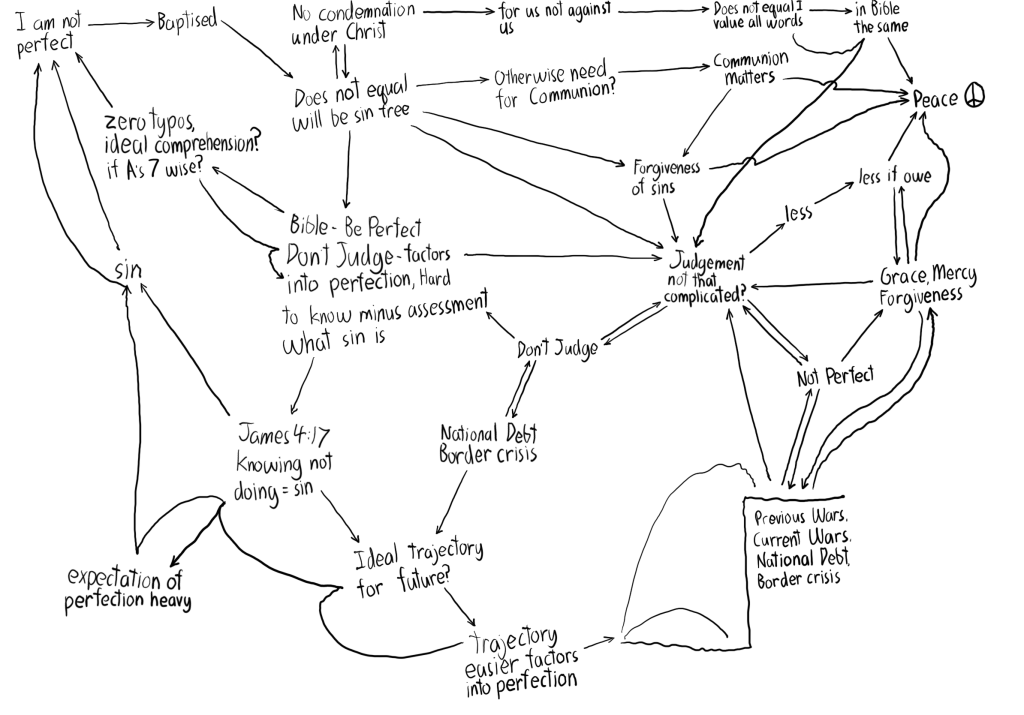 I am not
perfect
Baptised
No condemnation
under Christ
for us not against
us
Does not equal I
value all words
in Bible
the same
Does not equal
will be sin free
Otherwise need
for Communion?
Communion
matters
Peace
zero typos,
ideal comprehension?
if A's 7 wise?
Forgiveness
of sins
less if owe
less
Bible - Be Perfect
Don't Judge - factors
into perfection, Hard
to know minus assessment
what sin is
sin
Judgement
not that
complicated?
Grace, Mercy
Forgiveness
Don't Judge
Not Perfect
James 4:17
knowing not
doing = sin
National Debt
Border crisis
Previous Wars.
Current Wars.
National Debt,
Border crisis
Ideal trajectory
for future?
expectation of
perfection heavy
trajectory
easier factors
into perfection